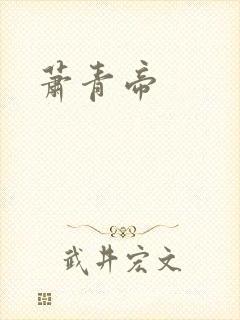 萧青帝
武井宏文